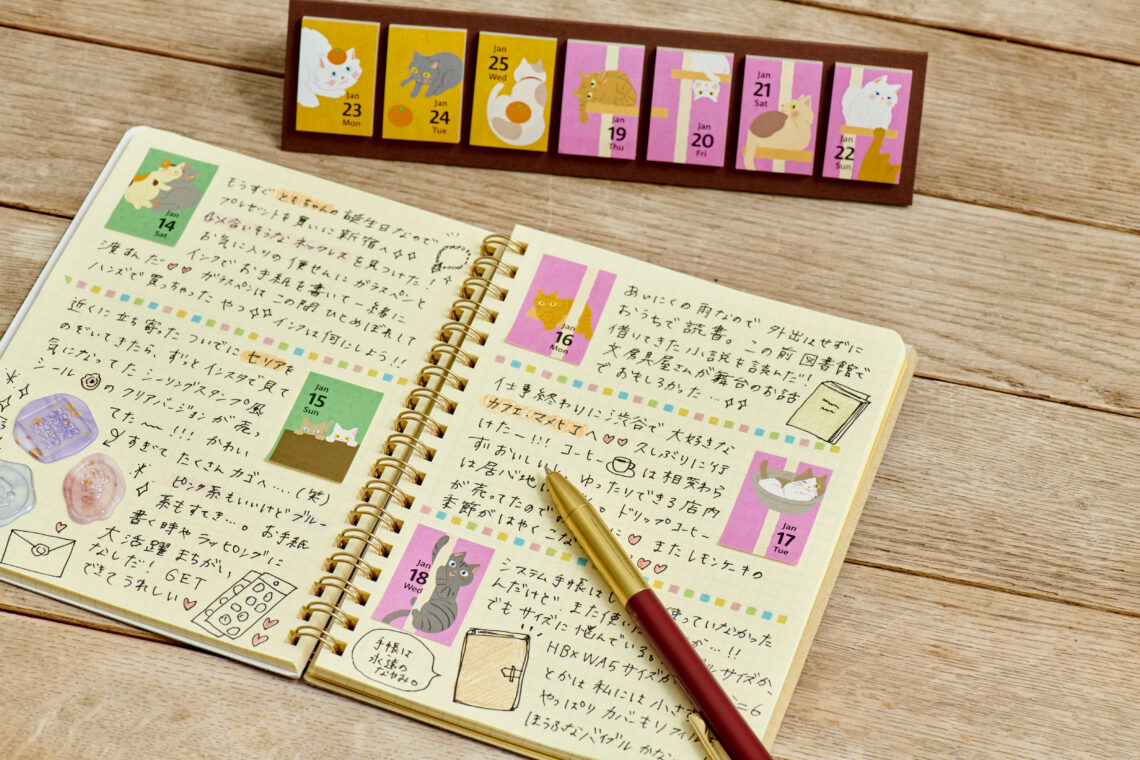 Jan
23
Mon
Jan
24
Tue
Jan
25
Wed
Jan
19
Thu
Jan
20
Fri
Jan
21
Sat
Jan
22
Sun
Jan
14
Sat
もうすぐともちゃんの誕生日なので
プレゼントを買いに新宿へ
似合いそうなネックレスを見つけた!
お気に入りの便せんにガラスペンと
インクでお手紙を書いて一緒に
渡すんだ♡♡ ガラスペンはこの間ひとめぼれして
ハンズで買っちゃったやつ インクは何にしよう!!
近くに立ち寄ったついでにセリアを
のぞいてきたら、ずっとインスタで見て
気になってたシーリングスタンプ風
シールのクリアバージョンが売っ
てた〜!!! かわい
すぎてたくさんカゴへ....(笑)
ピンク系もいいけどブルー
系もすてき...。お手紙
書く時やラッピングに
大活躍まちがい
なしだ! GET
できてうれしい♡
Jan
15
Sun
Jan
16
Mon
あいにくの雨なので外出はせずに
おうちで読書。この前図書館で
借りてきた小説を読んだ!!
文房具屋さんが舞台のお話
でおもしろかった...
仕事終わりに渋谷で大好きな
カフェ・マメヒコへ♡♡ 久しぶりに行
けたー!!! コーヒーは相変わら
ずおいしい ゆったりできる店内
は居心地 ドリップコーヒー
が売ってたので またレモンケーキの
季節がはやくこ
Jan
17
Tue
Jan
18
Wed
システム手帳は 使っていなかった
んだけど また使い が...!!
でもサイズに悩んでいる。 ルサイズか、
HB×WA5サイズか ミニ6
とかは私には小さ
やっぱりカバーもリフィル
ほうふなバイブルかな
手帳は
永遠の
なやみ。